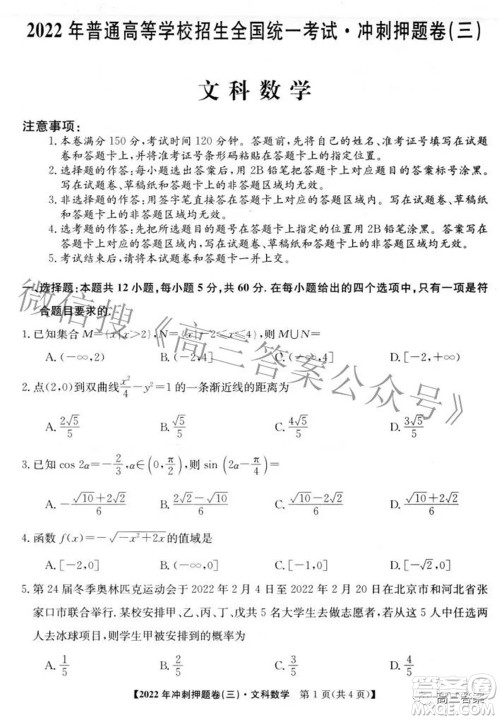 2022年普通高等学校招生全国统一考试·冲刺押题卷(三)
文科数学
注意事项:
1.本卷满分150分,考试时间120分钟。答题前,先将自己的姓名、准考证号填写在试题
卷和答题卡上,并将准考证号条形码粘贴在答题卡上的指定位置。
2.选择题的作答:每小题选出答案后,用2B铅笔把答题卡上对应题目的答案标号涂黑。
写在试题卷、草稿纸和答题卡上的非答题区域均无效。
3.非选择题的作答:用签字笔直接答在答题卡上对应的答题区域内。写在试题卷、草稿
纸和答题卡上的非答题区域均无效。
4.选考题的作答:先把所选题目的题号在答题卡上指定的位置用2B铅笔涂黑。答案写在
答题卡上对应的答题区域内,写在试题卷、草稿纸和答题卡上的非答题区域均无效。
5.考试结束后,请将本试题卷和答题卡一并上交。
一、选择题:本题共12小题,每小题5分,共60分。在每小题给出的四个选项中,只有一项是符
合题目要求的.
1.已知集合M={x|x>2},N={x|2<x<4},则M∪N=
A.(-∞,2) B.(-∞,4) C.(2,4) D.(2,+∞)
2.点(2,0)到双曲线x²/4-y²=1的一条渐近线的距离为
A.2√5/5 B.√5/5 C.4√5/5 D.√5
3.已知cos 2α=-2/3,α∈(0,π/2),则sin
A.-(√10+2√2)/6 B.(√10-2√2)/6 C.-(√10-2√2)/6 D.(√10+2√2)/6
4.函数f(x)=-√(-x²+2x)的值域是
A.[-2,0] B.(-∞,0] C.[-1,0] D.[-√2,0]
5.第24届冬季奥林匹克运动会于2022年2月4日至2022年2月20日在北京市和河北省张
家口市联合举行.某校安排甲、乙、丙、丁、戊五名学生去做志愿者,若每名学生都有机会去
冰球项目,则学生甲被安排到冰球项目做志愿者的概率为
A.1/5 B.2/5 C.3/5 D.4/5
【2022年冲刺押题卷(三)·文科数学 第1页(共4页)】
微信搜《高三答案公众号》
高三答案